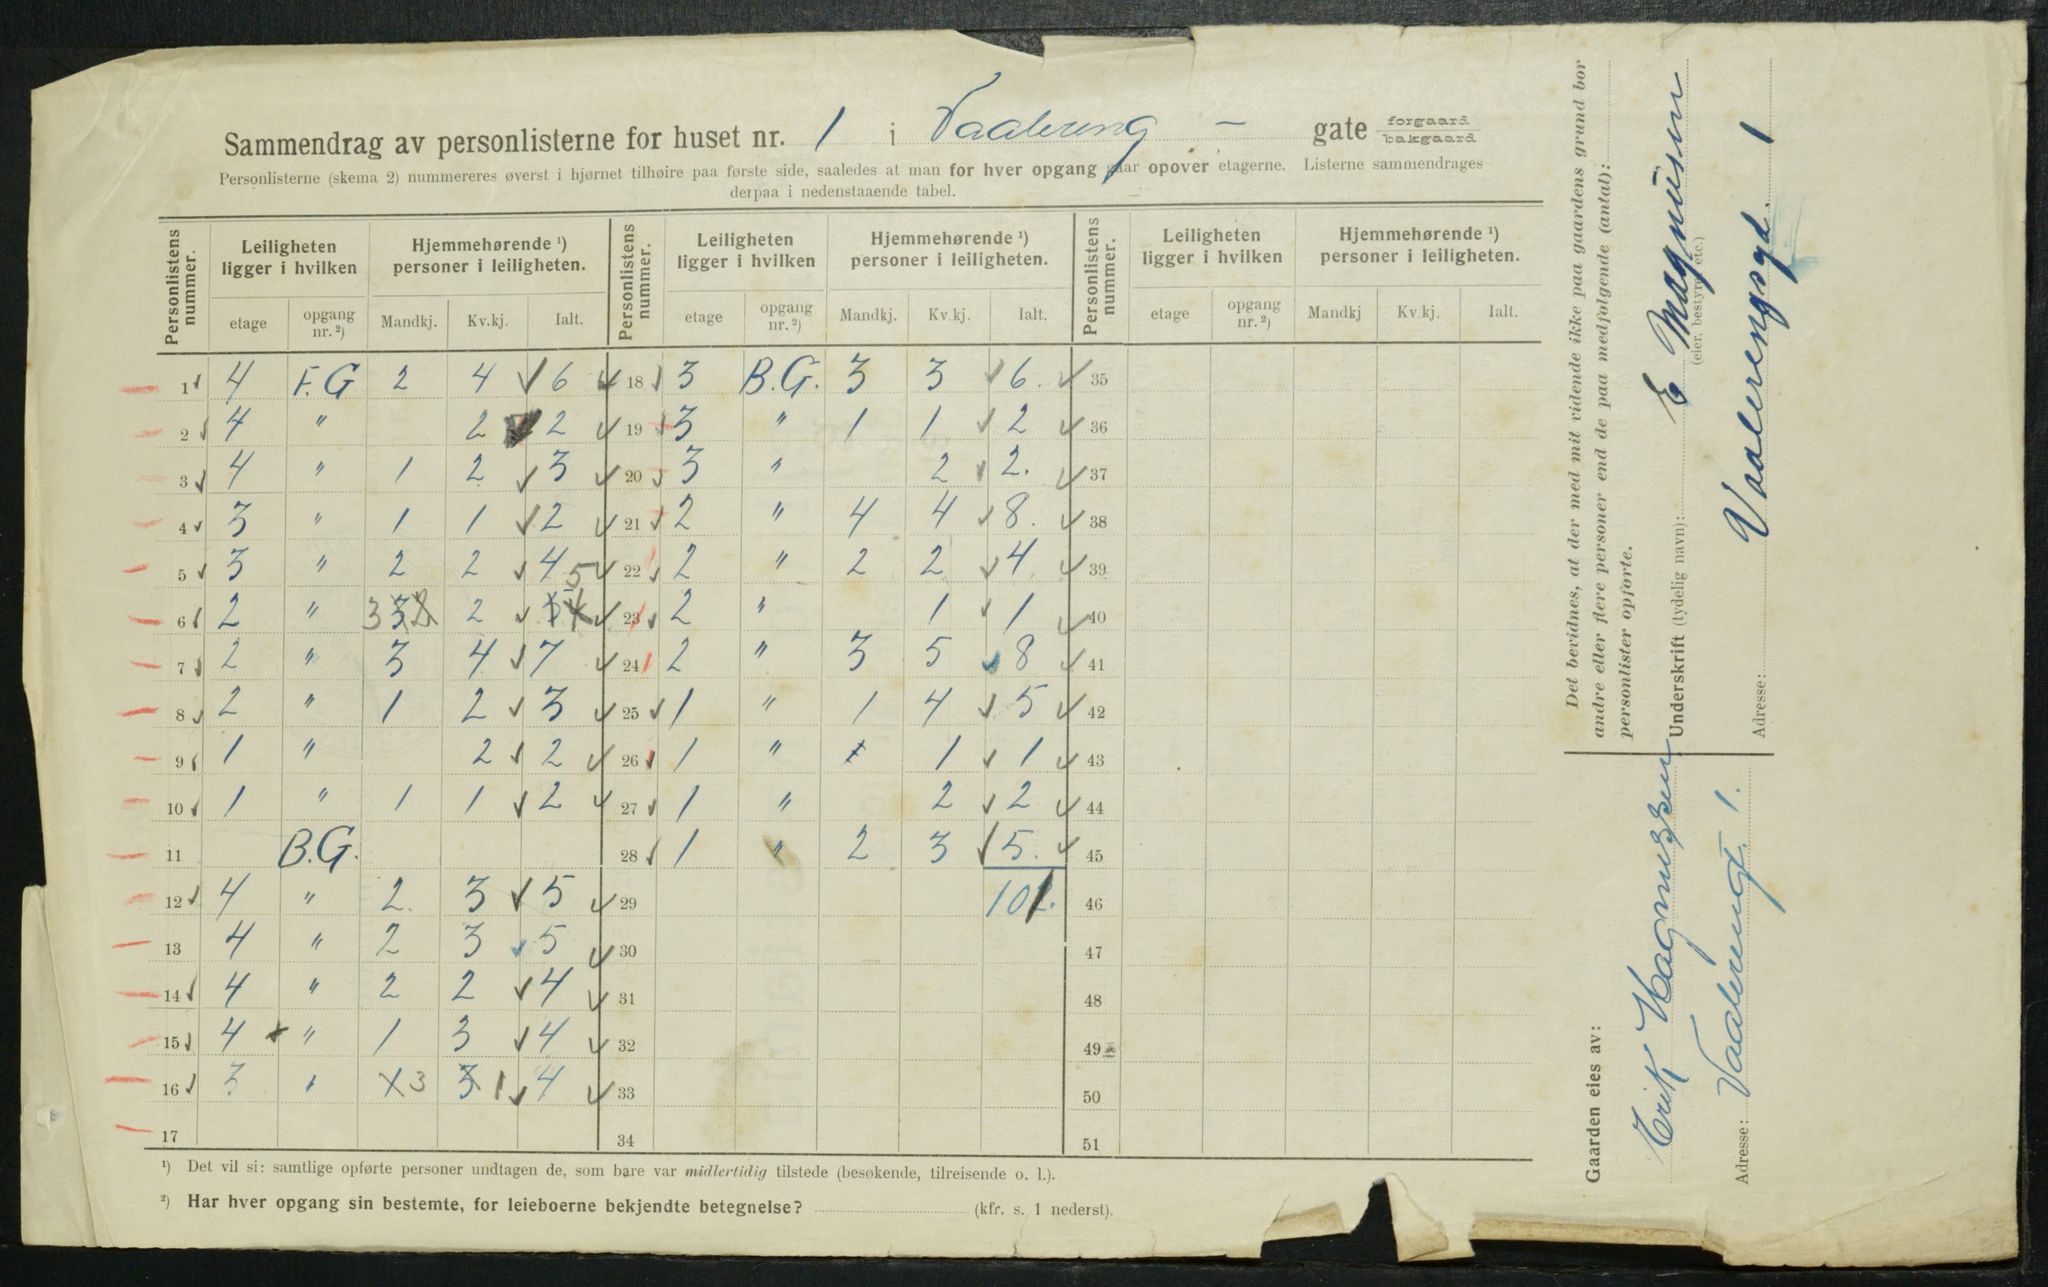 Sammendrag av personlisterne for huset nr. 1 i Vaalereng - gate forgaard bakgaard
Personlisterne (skema 2) nummereres øverst i hjørnet tilhøire paa første side, saaledes at man for hver opgang gaar opover etagerne. Listerne sammendrages
derpaa i nedenstaaende tabel.
Personlistens nummer. Leiligheten ligger i hvilken etage opgang nr. ²) Hjemmehørende ¹) personer i leiligheten. Mandkj. Kv.kj. Ialt.
Personlistens nummer. Leiligheten ligger i hvilken etage opgang nr. ²) Hjemmehørende ¹) personer i leiligheten. Mandkj. Kv.kj. Ialt.
Personlistens nummer. Leiligheten ligger i hvilken etage opgang nr. ²) Hjemmehørende ¹) personer i leiligheten. Mandkj Kv.kj. Ialt.
1 4 F.G 2 4 6 18 3 B.G. 3 3 6. 35
2 4 " 2 2 19 3 " 1 1 2 36
3 4 " 1 2 3 20 3 " 2 2. 37
4 3 " 1 1 2 21 2 " 4 4 8. 38
5 3 " 2 2 4 22 2 " 2 2 4 39
6 2 " 3 2 5 23 2 " 1 1 40
7 2 " 3 4 7 24 2 " 3 5 8 41
8 2 " 1 2 3 25 1 " 1 4 5 42
9 1 " 2 2 26 1 " 1 1 43
10 1 " 1 1 2 27 1 " 2 2 44
11 B.G. 28 1 " 2 3 5. 45
12 4 " 2. 3 5 29 102. 46
13 4 " 2 3 5 30 47
14 4 " 2 2 4 31 48
15 4 " 1 3 4 32 49
16 3 " 3 1 4 33 50
17 34 51
¹) Det vil si: samtlige opførte personer undtagen de, som bare var midlertidig tilstede (besøkende, tilreisende o. l.).
²) Har hver opgang sin bestemte, for leieboerne bekjendte betegnelse? (kfr. s. 1 nederst).
Det bevidnes, at der med mit vidende ikke paa gaardens grund bor
andre eller flere personer end de paa medfølgende (antal):
personlister opførte.
Underskrift (tydelig navn): E Magnusen
(eier, bestyrer etc.)
Adresse: Vaalerengsgd. 1
Gaarden eies av:
Erik Magnussen
Adresse: Vaalerengt. 1.